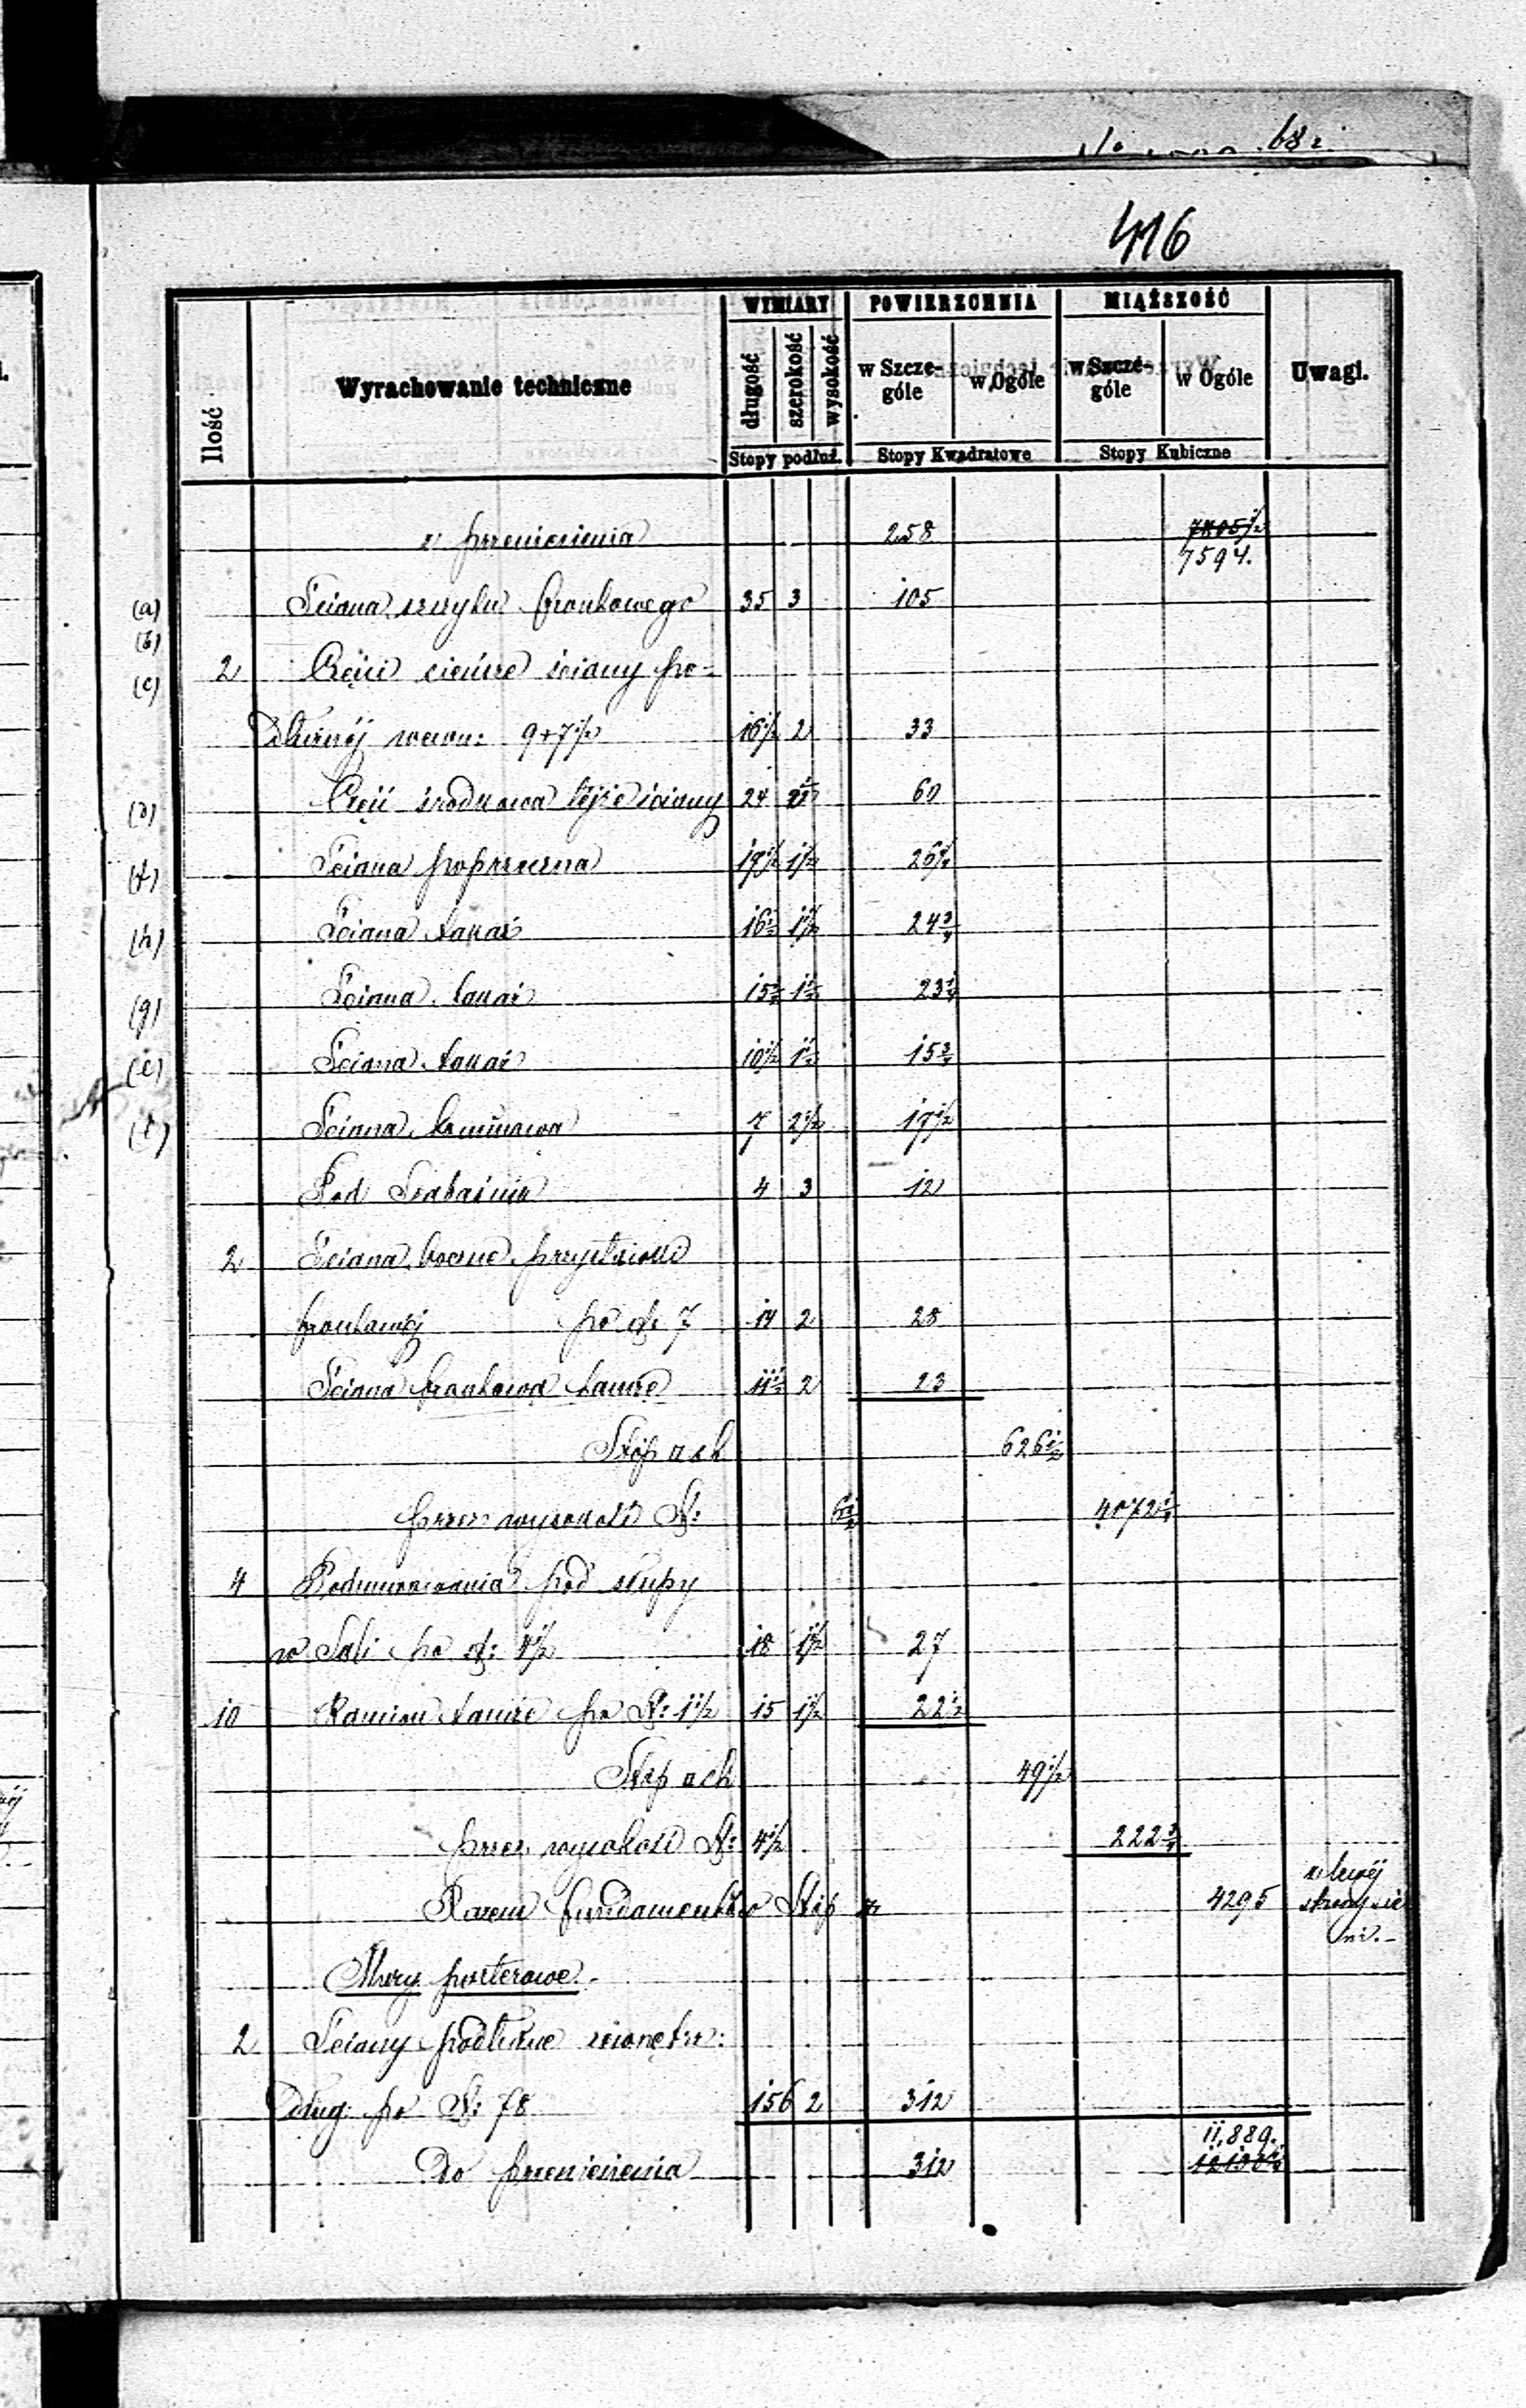 416
WYMIARY POWIERZCHNIA MIĄŻSZOŚĆ
Ilość Wyrachowanie techniczne długość szerokość wysokość w Szczególe w Ogóle w Szczególe w Ogóle Uwagi.
Stopy podłuż. Stopy Kwadratowe Stopy Kubiczne
z przeniesienia 258 7805 1/2
7594.
(a) Ściana szczytu frontowego 35 3 105
(b)
2 Części cieńsze ściany po-
(c)
dłużnej wewn: 9+7 1/2 16 1/2 2 33
(d) Część środkowa tejże ściany 24 2 1/2 60
(f) Ściana poprzeczna 17 1/2 1 1/2 26 1/4
(h) Ściana takaż 16 1/2 1 1/2 24 3/4
(g) Ściana takaż 15 1/2 1 1/2 23 1/4
(e) Ściana takaż 10 1/2 1 1/2 15 3/4
Ściana kominowa 7 2 1/2 17 1/2
Pod 4 3 12
2 Ściana boczne przystawki
frontowej po st. 7 14 2 28
Ściana frontowa tamże 11 1/2 2 23
Stóp ach 626 1/2
przez wysokość St: 6 1/2 4072 1/4
4 Podmurowania pod słupy
w Sali po st: 4 1/2 18 1 1/2 27
10 tamże po St: 1 1/2 15 1 1/2 22 1/2
Stóp ach 49 1/2
przez wysokość St: 4 1/2 222 3/4
Razem fundamentów Stóp 4295 z lewej
strony sie
ni.-
Mury parterowe.-
2 Ściany podłużne zewnętrz:
dług: po St: 78 156 2 312
11,889.
Do przeniesienia 312 12100 1/2